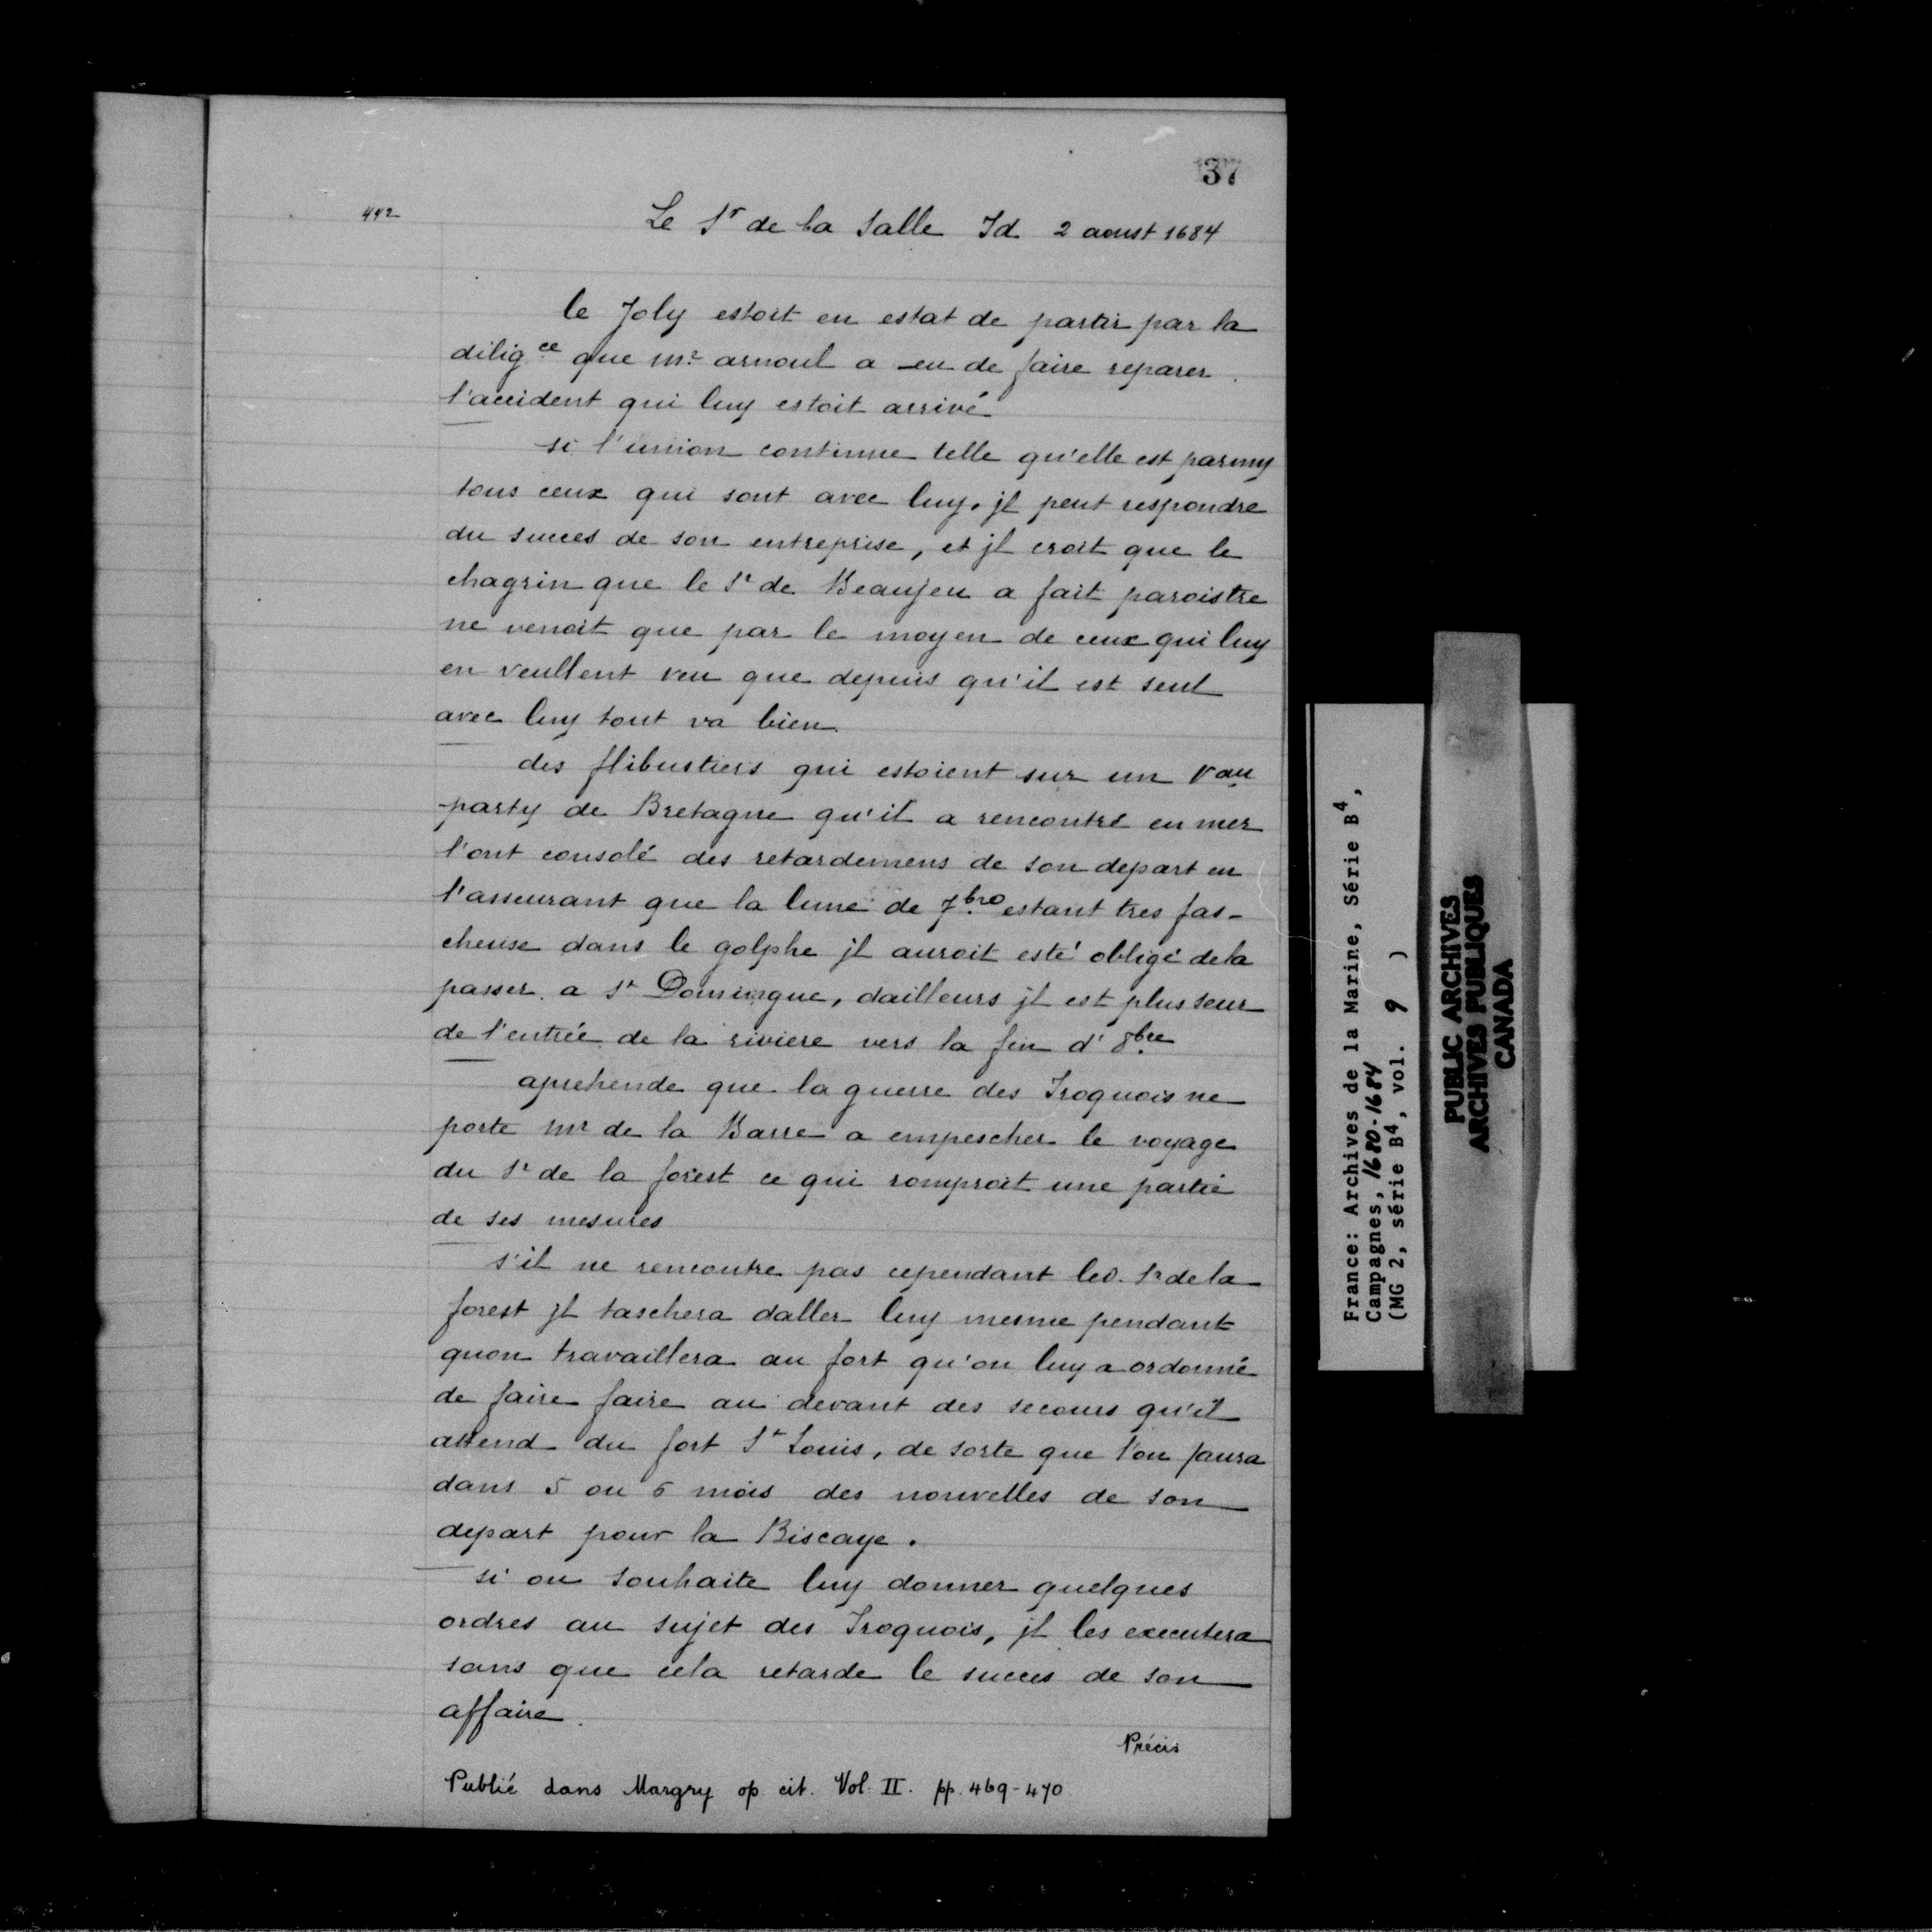 37
442
Le Sr de la Salle Id. 2 aoust 1684
le Joly estoit en estat de partir par la
diligce que mr arnoul a eu de faire reparer
l'accident qui luy estoit arrivé
si l'union continue telle qu'elle est parmy
tous ceux qui sont avec luy, jl peut respondre
du succes de son entreprise, et jl croit que le
chagrin que le Sr de Beaujeu a fait paroistre
ne venoit que par le moyen de ceux qui luy
en veullent veu que depuis qu'il est seul
avec luy tout va bien.
des flibustiers qui estoient sur un vau
party de Bretagne qu'il a rencontré en mer
l'ont consolé des retardemens de son depart en
l'asseurant que la lune de 7bre estant tres fas-
cheuse dans le golphe jl auroit esté obligé de la
passer a St Domingue, dailleurs jl est plus seur
de l'entrée de la riviere vers la fin d'8bre
aprehende que la guerre des Iroquois ne
porte mr de la Barre a empescher le voyage
du Sr de la forest ce qui romproit une partie
de ses mesures
s'il ne rencontre pas cependant led. Sr de la
forest jl taschera daller luy mesme pendant
quon travaillera au fort qu'on luy a ordonné
de faire faire au devant des secours qu'il
attend du fort St Louis, de sorte que l'on saura
dans 5 ou 6 mois des nouvelles de son
depart pour la Biscaye.
si on souhaite luy donner quelques
ordres au sujet des Iroquois, jl les executera
sans que cela retarde le succes de son
affaire.
Précis
Publié dans Margry op. cit. Vol. II. pp. 469-470
France: Archives de la Marine, Série B4,
Campagnes, 1680-1684
(MG 2, série B4, vol. 9 )
PUBLIC ARCHIVES
ARCHIVES PUBLIQUES
CANADA